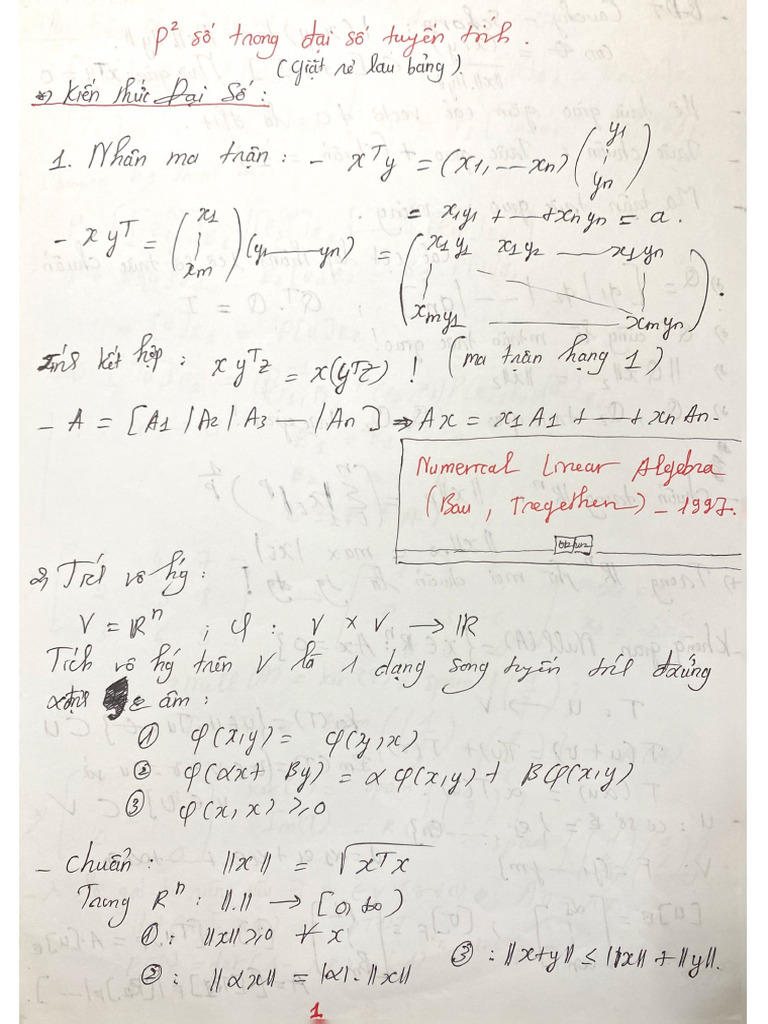 P² số trong đại số tuyến tính.
(giặt rẻ lau bảng).
*) Kiến thức Đại Số:
1. Nhân ma trận: - xᵀy = (x1, --- xn) (y1 ⋮ yn)
= x1y1 + --- + xnyn = a.
- xyᵀ = (x1 ⋮ xm) (y1 --- yn) = (x1y1 x1y2 --- x1yn ⋮ xmy1 --- xmyn).
Tính kết hợp: xyᵀz = x(yᵀz) ! (ma trận hạng 1)
- A = [A1 | A2 | A3 --- | An] ⇒ Ax = x1A1 + --- + xnAn.
Numerical Linear Algebra
(Bau, Tregethen) - 1997.
2) Tích vô hg:
V = ℝⁿ ; φ: V × V → ℝ
Tích vô hg trên V là 1 dạng song tuyến tính đxứng
xđịnh âm:
① φ(x,y) = φ(y,x)
② φ(αx + βy) = α φ(x,y) + β φ(x,y)
③ φ(x,x) ≥ 0
- Chuẩn: ||x|| = √xᵀx
Trong ℝⁿ: ||.|| → [0, +∞)
①: ||x|| ≥ 0 ∀x
②: ||αx|| = |α|. ||x||
③: ||x+y|| ≤ ||x|| + ||y||.
1